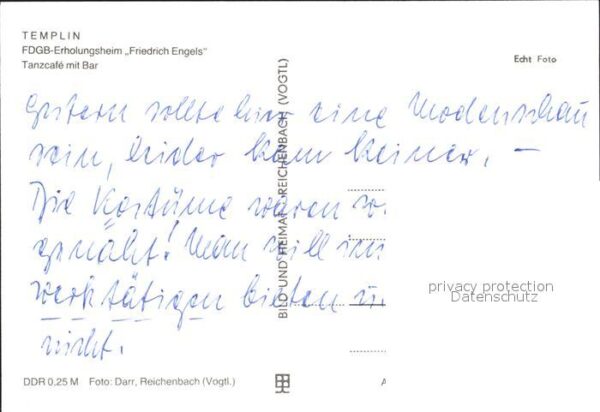 TEMPLIN
FDGB-Erholungsheim „Friedrich Engels"
Tanzcafé mit Bar
Echt Foto
Gestern sollte hier eine Modenschau
sein, leider kam keiner, –
Die Kostüme waren
genäht! Man will
werktätigen bieten
nicht.
BILD UND HEIMAT REICHENBACH (VOGTL)
privacy protection
Datenschutz
DDR 0,25 M Foto: Darr, Reichenbach (Vogtl.)
A